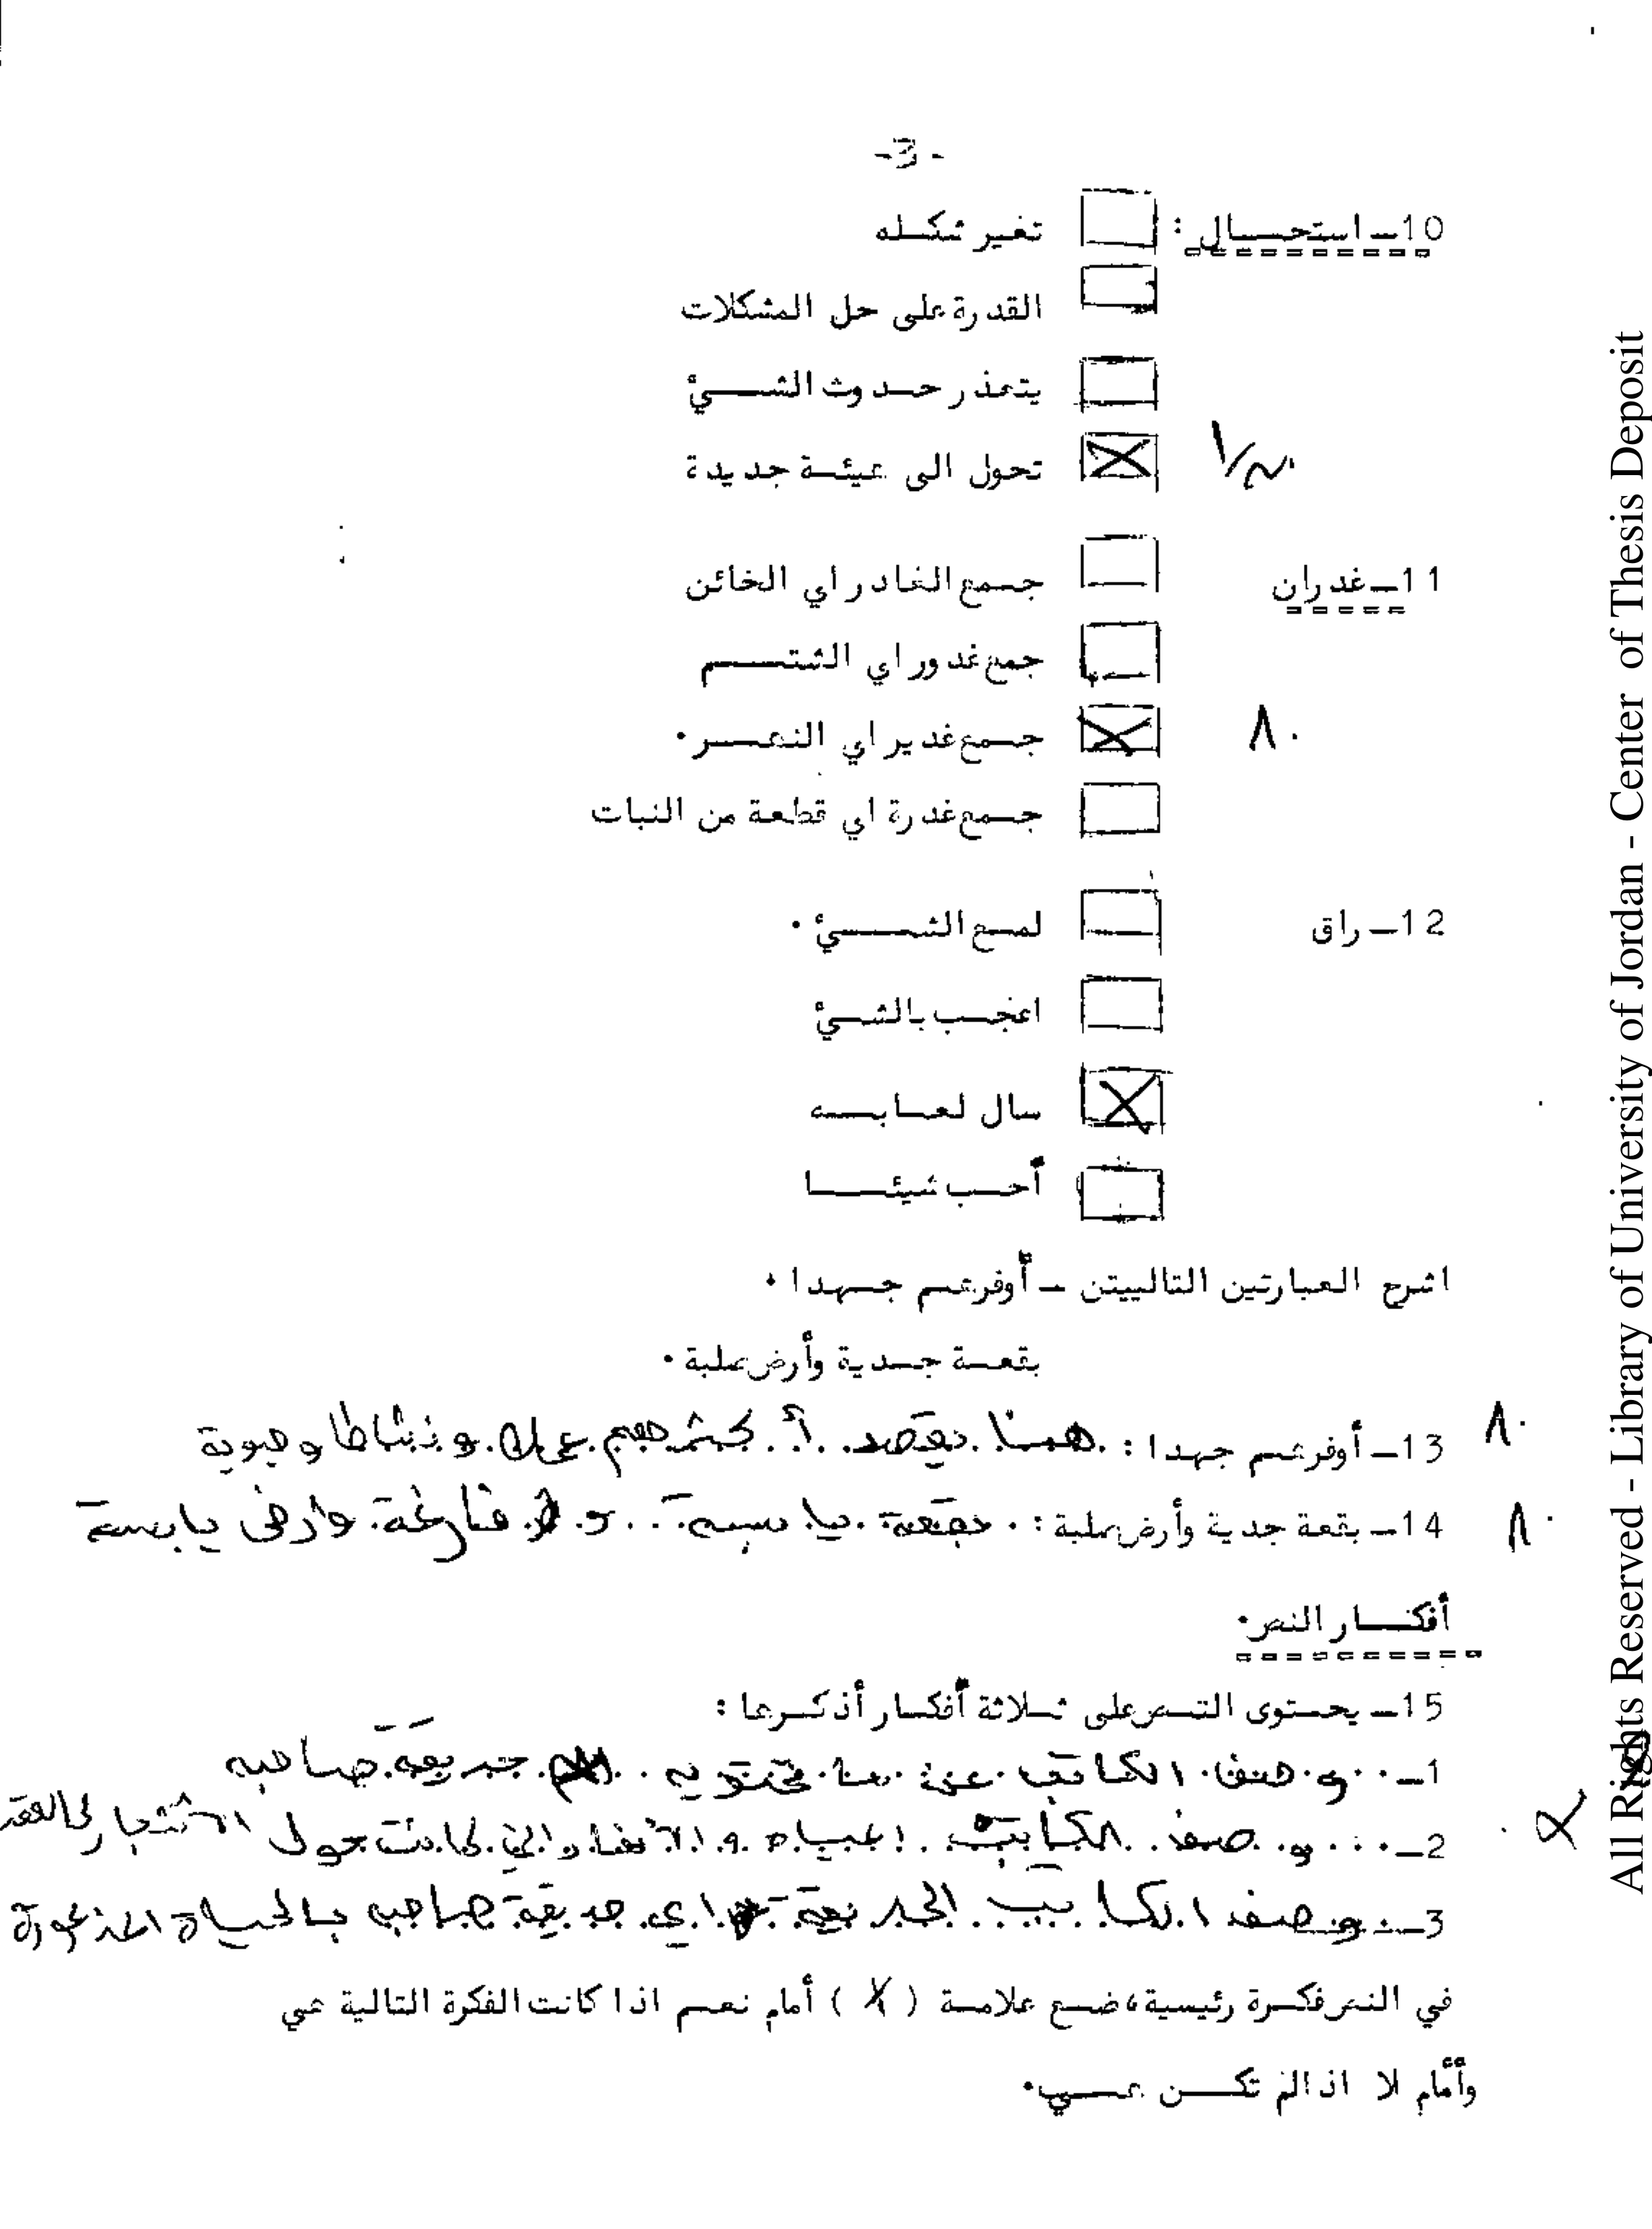 -3-
10- استحال : تغير شكله
القدرة على حل المشكلات
يتعذر حدوث الشيئ
تحول الى هيئة جديدة
11- غدران جمع الغادر اي الخائن
جمع غدور اي الشتم
٨٠ جمع غدير اي النهر .
جمع غدرة اي قطعة من النبات
12- راق لمع الشيئ .
اعجب بالشيئ
سال لعابه
أحب شيئا
اشرح العبارتين التالييتن - أوفرهم جهدا .
بقعة جدية وأرض صلبة .
٨٠ 13- أوفرهم جهدا : هنا يقصد أكثرهم عمل و نشاطا وحيوية
٨٠ 14- بقعة جدية وأرض صلبة : بقعة يابسة و فارغة وارض يابسة
أفكار النص .
15- يحتوى النص على ثلاثة أفكار أذكرها :
1- وصف الكاتب عن ما تحتويه حديقة صاحبه
2- وصف الكاتب المياه و الأنهار التي كانت حول الاشجار
3- وصف الكاتب الحديقة اي حديقة صاحبه بالحياة
في النص فكرة رئيسية، ضع علامة ( X ) أمام نعم اذا كانت الفكرة التالية هي
وأمام لا اذا لم تكن هي .
All Rights Reserved - Library of University of Jordan - Center of Thesis Deposit